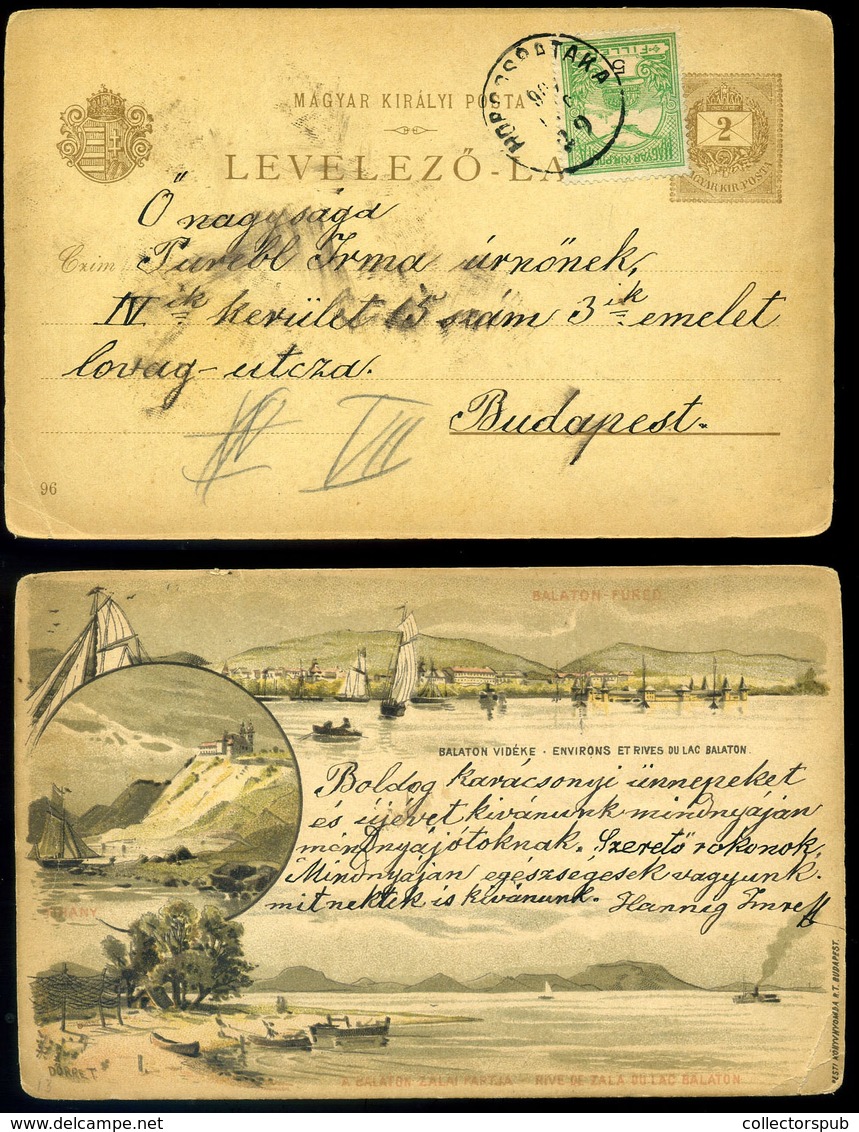 MAGYAR KIRÁLYI POSTA
LEVELEZŐ-LA
FILLÉR
5
MAGYAR KIR. POSTA
2
MAGYAR KIR. POSTA
Ő nagysága
Czim Turebl Irma úrnőnek,
IV ik kerület 15 szám 3 ik emelet
lovag-utcza.
IV VII
Budapest.
96
BALATON-FÜRED
BALATON VIDÉKE · ENVIRONS ET RIVES DU LAC BALATON.
Boldog karácsonyi ünnepeket
és újévet kivánunk mindnyáján
mindnyájótoknak. Szerető rokonok,
Mindnyáján egészségesek vagyunk.
mit nektek is kivánunk. Hannig Imre
TIHANY
DÖRRE T. 1.
13
A BALATON ZALAI PARTJA - RIVE DE ZALA DU LAC BALATON
PESTI KÖNYVNYOMDA R. T. BUDAPEST.
collectorspub
delcampe.net